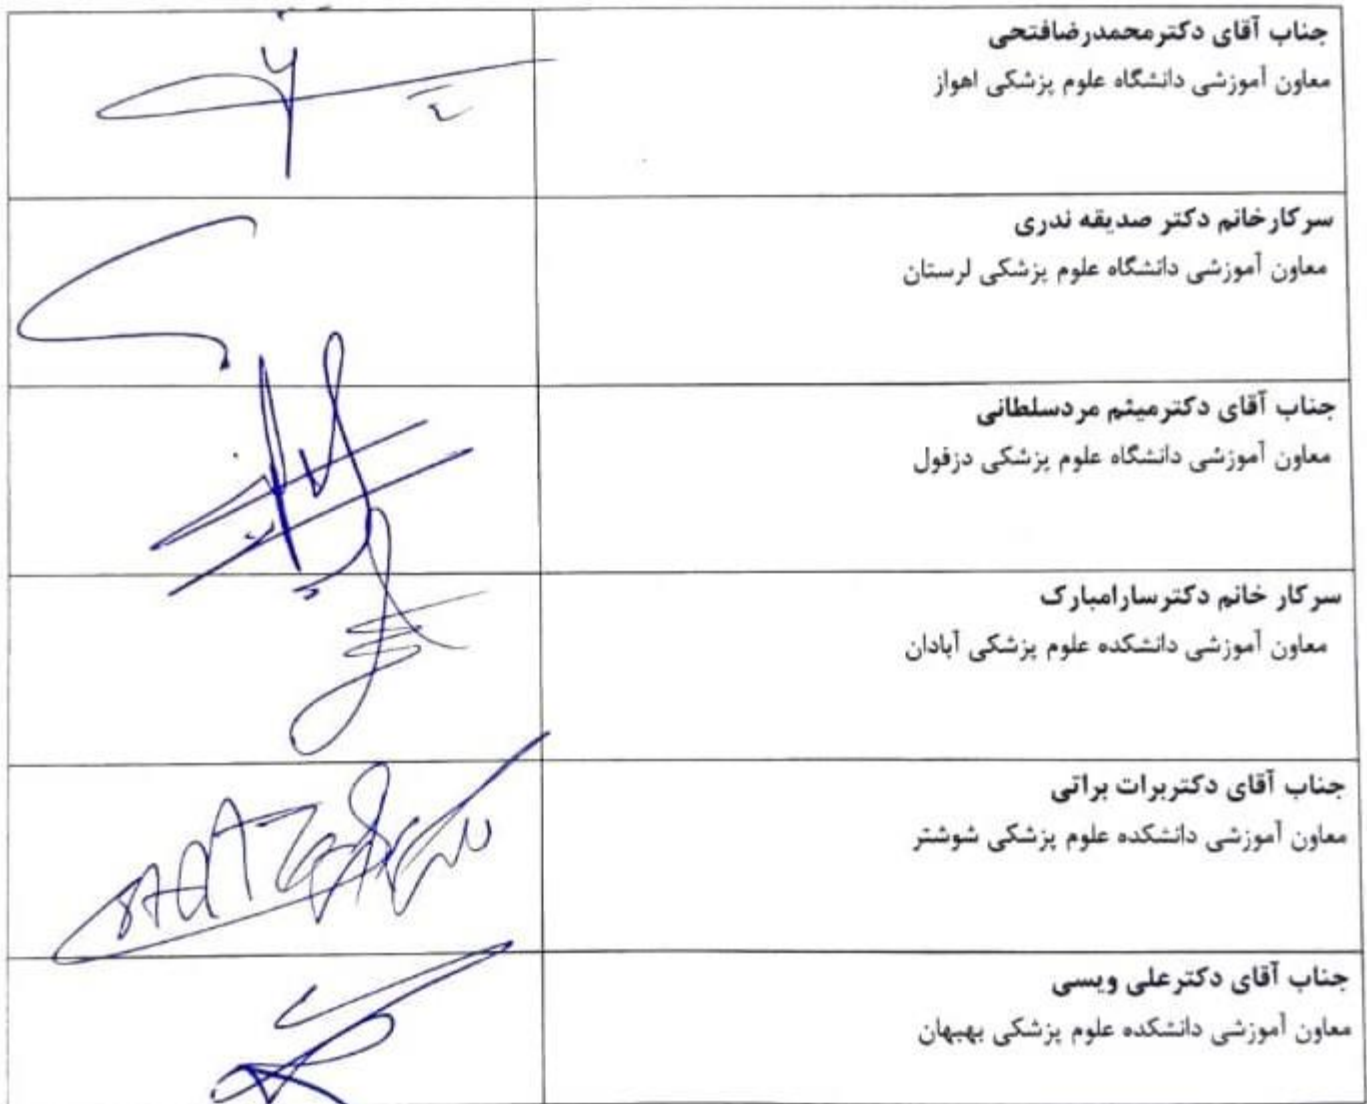 جناب آقای دکترمحمدرضافتحی
معاون آموزشی دانشگاه علوم پزشکی اهواز
سرکارخانم دکتر صدیقه ندری
معاون آموزشی دانشگاه علوم پزشکی لرستان
جناب آقای دکترمیثم مردسلطانی
معاون آموزشی دانشگاه علوم پزشکی دزفول
سرکار خانم دکترسارامبارک
معاون آموزشی دانشکده علوم پزشکی آبادان
جناب آقای دکتربرات براتی
معاون آموزشی دانشکده علوم پزشکی شوشتر
جناب آقای دکترعلی ویسی
معاون آموزشی دانشکده علوم پزشکی بهبهان